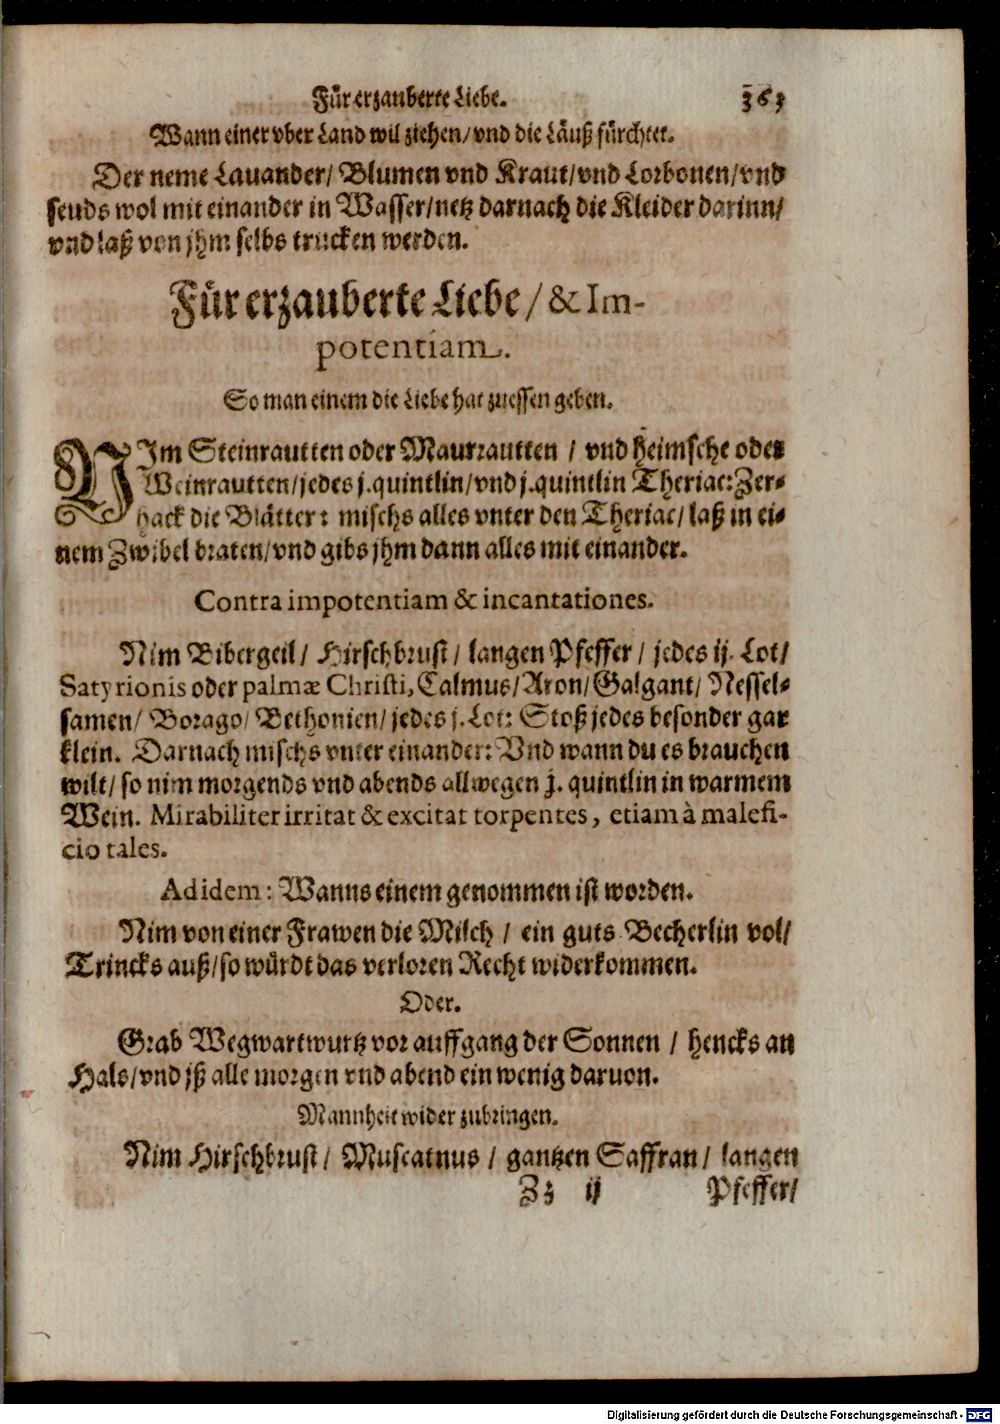 Für erzauberte Liebe. 363
Wann einer vber Land wil ziehen/ vnd die Läuß fürchtet.
Der neme Lauander/ Blumen vnd Kraut/ vnd Lorbonen/ vnd
seuds wol mit einander in Wasser/ netz darnach die Kleider darinn/
vnd laß von jhm selbs trucken werden.
Für erzauberte Liebe/ & Im-
potentiam.
So man einem die Liebe hat zuessen geben.
NIm Steinrautten oder Maurrautten / vnd heimsche oder
Weinrautten/ jedes j. quintlin/ vnd j. quintlin Theriac: Zer-
hack die Blätter: mischs alles vnter den Theriac/ laß in ei-
nem Zwibel braten/ vnd gibs jhm dann alles mit einander.
Contra impotentiam & incantationes.
Nim Bibergeil/ Hirschbrust/ langen Pfeffer/ jedes ij. Lot/
Satyrionis oder palmæ Christi, Calmus/ Aron/ Galgant/ Nessel-
samen/ Borago/ Bethonien/ jedes j. Lot: Stoß jedes besonder gar
klein. Darnach mischs vnter einander: Vnd wann du es brauchen
wilt/ so nim morgends vnd abends allwegen j. quintlin in warmem
Wein. Mirabiliter irritat & excitat torpentes, etiam à malefi-
cio tales.
Ad idem: Wanns einem genommen ist worden.
Nim von einer Frawen die Milch / ein guts Becherlin vol/
Trincks auß/ so würdt das verloren Recht widerkommen.
Oder.
Grab Wegwartwurtz vor auffgang der Sonnen / hencks an
Hals/ vnd jß alle morgen vnd abend ein wenig daruon.
Mannheit wider zubringen.
Nim Hirschbrust/ Muscatnus / gantzen Saffran/ langen
Zz ij Pfeffer/
Digitalisierung gefördert durch die Deutsche Forschungsgemeinschaft - DFG